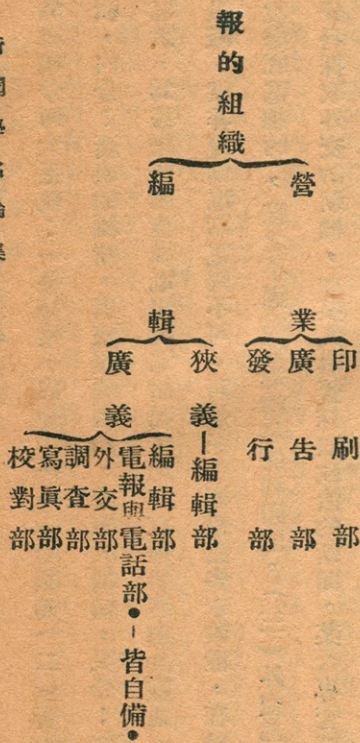 報的組織
營業
印刷部
廣告部
發行部
編輯
狹義—編輯部
廣義
編輯部
電報與電話部•—皆自備•
外交部
調查部
寫眞部
校對部